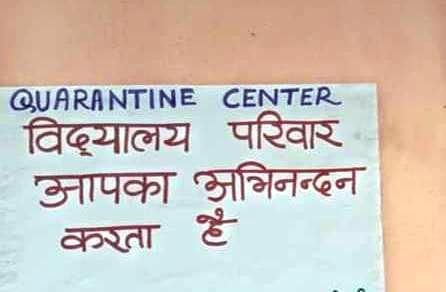 QUARANTINE CENTER
विद्यालय परिवार
आपका अभिनन्दन
करता है